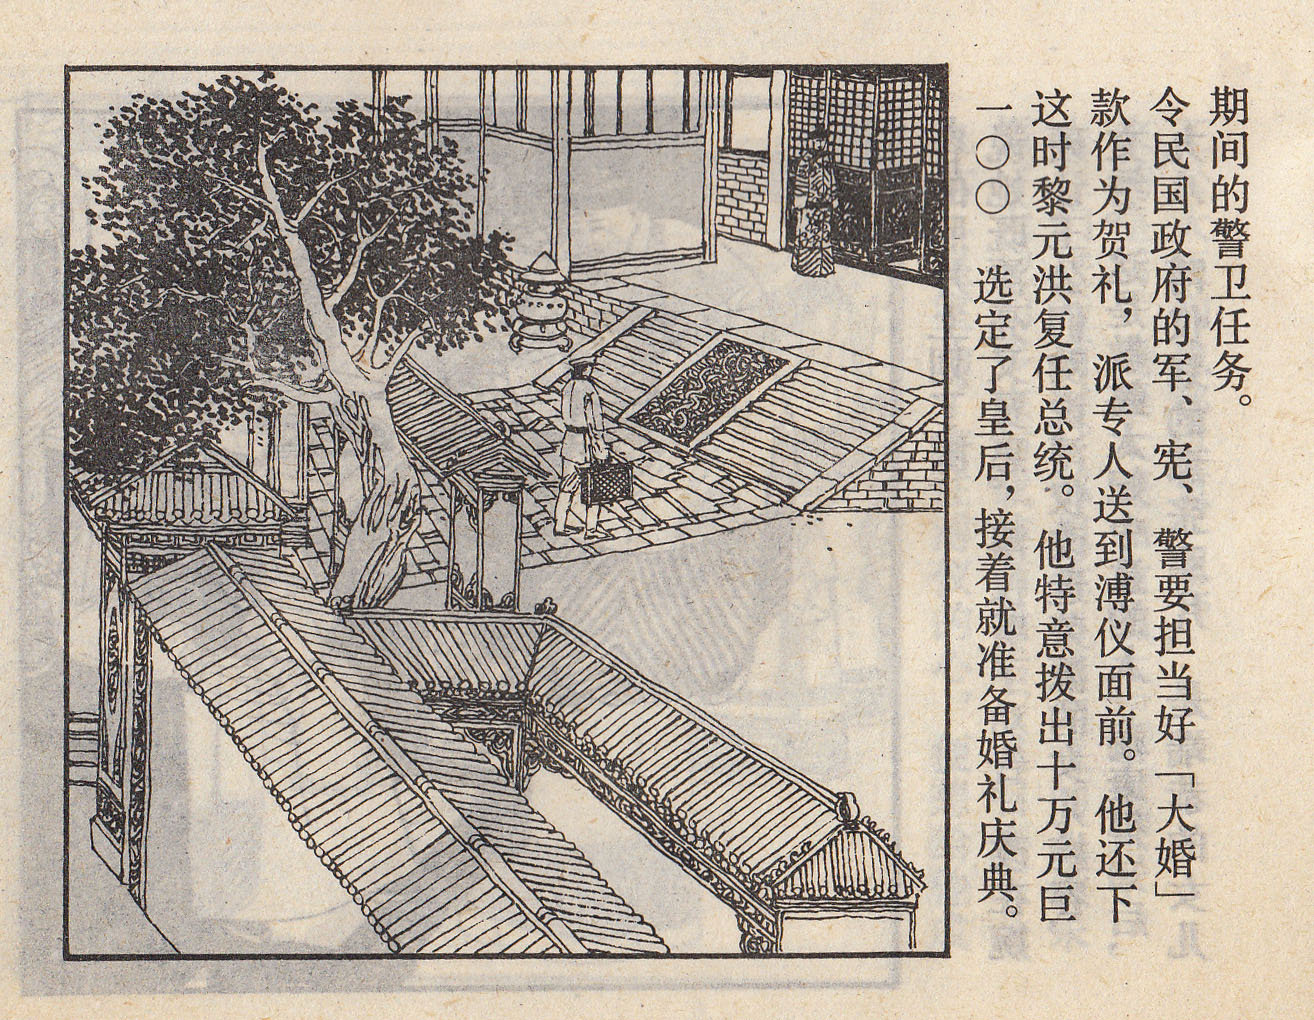 一〇〇 选定了皇后，接着就准备婚礼庆典。
这时黎元洪复任总统。他特意拨出十万元巨
款作为贺礼，派专人送到溥仪面前。他还下
令民国政府的军、宪、警要担当好「大婚」
期间的警卫任务。